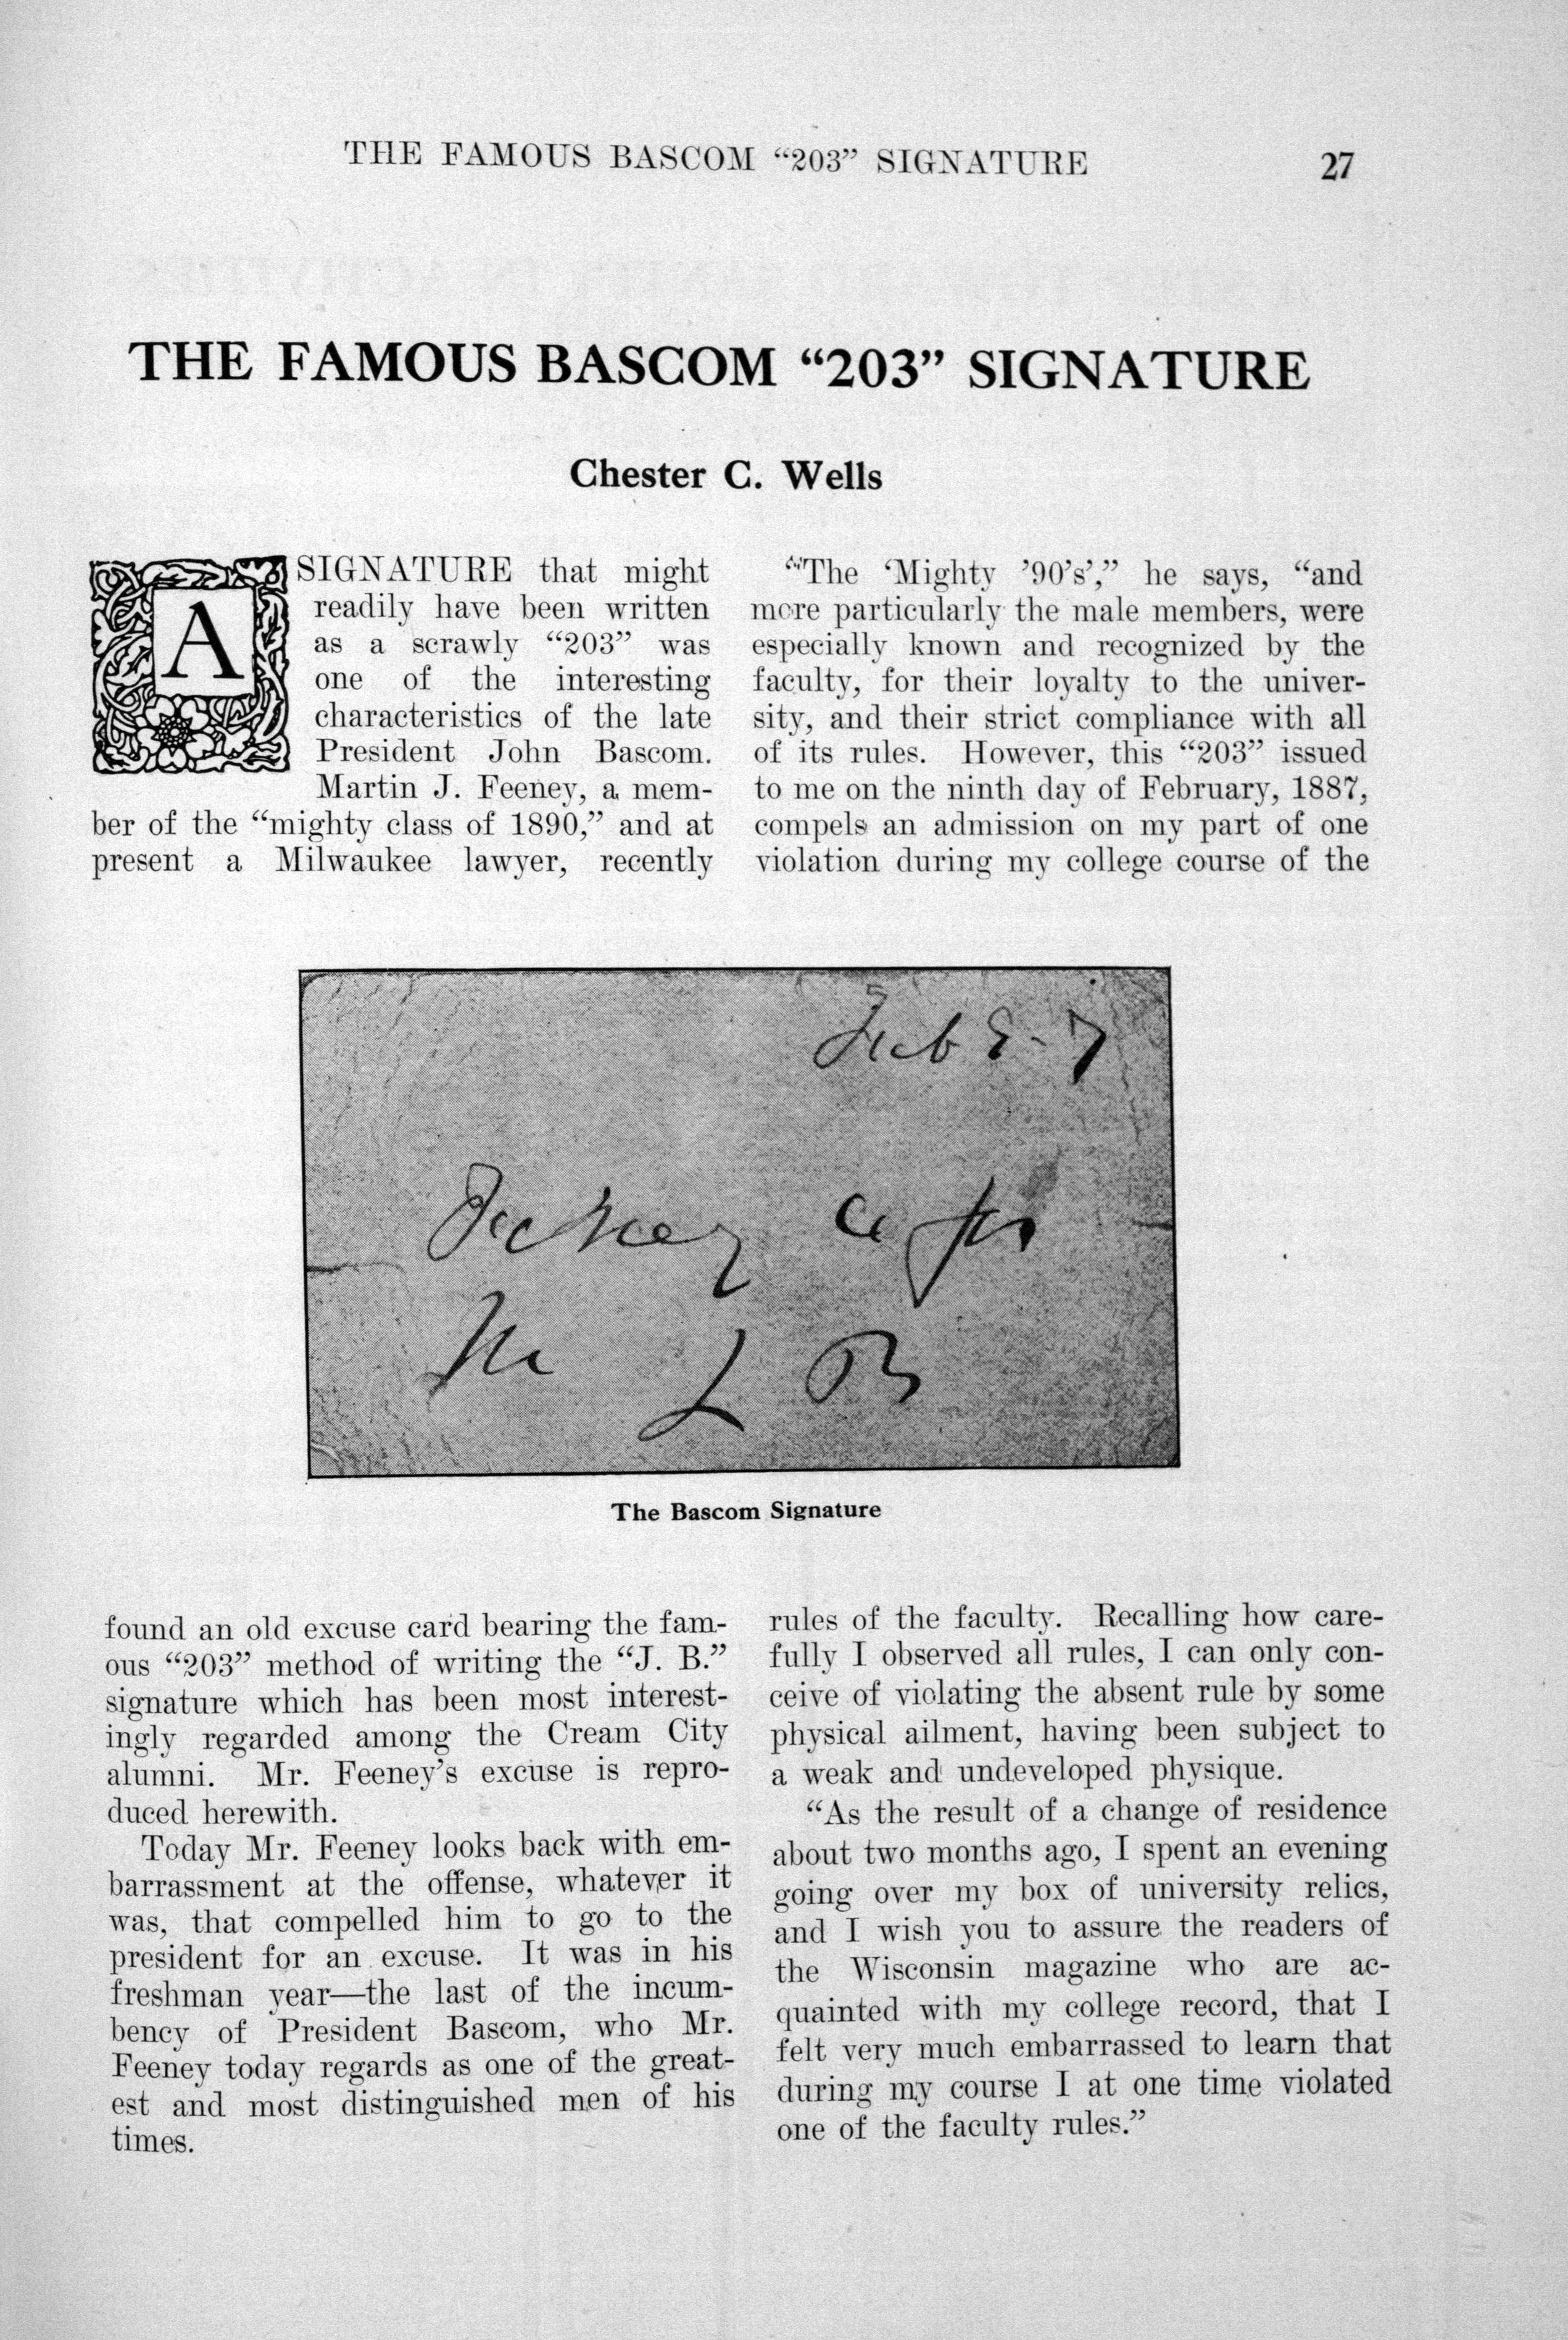 THE FAMOUS BASCOM “203” SIGNATURE 27
THE FAMOUS BASCOM “203” SIGNATURE
Chester C. Wells
A SIGNATURE that might
readily have been written
as a scrawly “203” was
one of the interesting
characteristics of the late
President John Bascom.
Martin J. Feeney, a mem-
ber of the “mighty class of 1890,” and at
present a Milwaukee lawyer, recently
found an old excuse card bearing the fam-
ous “203” method of writing the “J. B.”
signature which has been most interest-
ingly regarded among the Cream City
alumni. Mr. Feeney’s excuse is repro-
duced herewith.
Today Mr. Feeney looks back with em-
barrassment at the offense, whatever it
was, that compelled him to go to the
president for an excuse. It was in his
freshman year—the last of the incum-
bency of President Bascom, who Mr.
Feeney today regards as one of the great-
est and most distinguished men of his
times.
“The ‘Mighty ’90’s’,” he says, “and
more particularly the male members, were
especially known and recognized by the
faculty, for their loyalty to the univer-
sity, and their strict compliance with all
of its rules. However, this “203” issued
to me on the ninth day of February, 1887,
compels an admission on my part of one
violation during my college course of the
rules of the faculty. Recalling how care-
fully I observed all rules, I can only con-
ceive of violating the absent rule by some
physical ailment, having been subject to
a weak and undeveloped physique.
“As the result of a change of residence
about two months ago, I spent an evening
going over my box of university relics,
and I wish you to assure the readers of
the Wisconsin magazine who are ac-
quainted with my college record, that I
felt very much embarrassed to learn that
during my course I at one time violated
one of the faculty rules.”
Feb
J B
The Bascom Signature